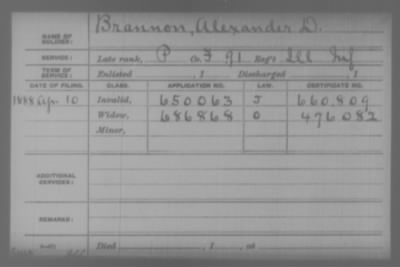 Brannon, Alexander D.
NAME OF SOLDIER:
SERVICE: Late rank, P Co. F 91 Reg't Ill Inf
TERM OF SERVICE: Enlisted , 1 Discharged , 1
DATE OF FILING. CLASS. APPLICATION NO. LAW. CERTIFICATE NO.
1888 Apr. 10 Invalid, 650063 J 660.809
Widow, 686868 O 476082
Minor,
ADDITIONAL SERVICES:
REMARKS:
Died , 1 , at